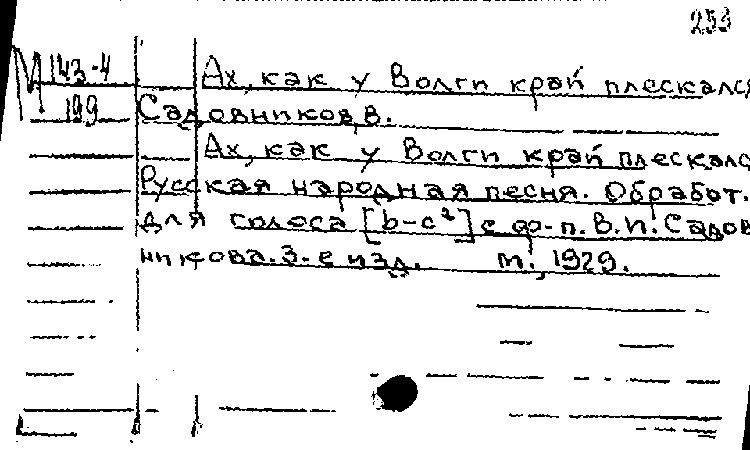 253
М 143-4
199
Ах, как у Волги край плескался
Садовников, В.
Ах, как у Волги край плескалс
Русская народная песня. Обработ.
для голоса [b-c²] с ф-п. В.И. Садов
никова. 3-е изд. М., 1929.